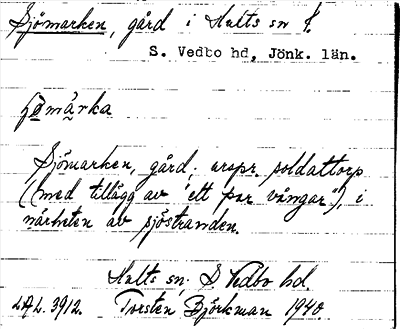 Sjömarken, gård i Hults sn
S. Vedbo hd, Jönk. län.
Sjömarken, gård; urspr. soldattorp
(med tillägg av "ett par vångar"), i
närheten av sjöstranden.
Hults sn, S Vedbo hd.
LAL. 3912. Torsten Björkman 1940